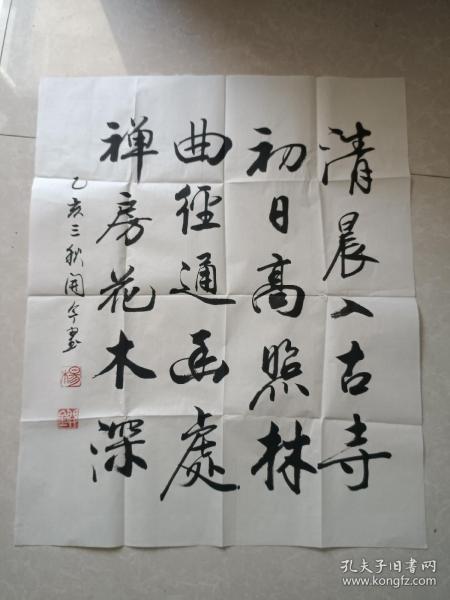 清晨入古寺
初日高照林
曲径通幽處
禅房花木深
乙亥三秋開年書
楊
孔夫子旧书网
www.kongfz.com